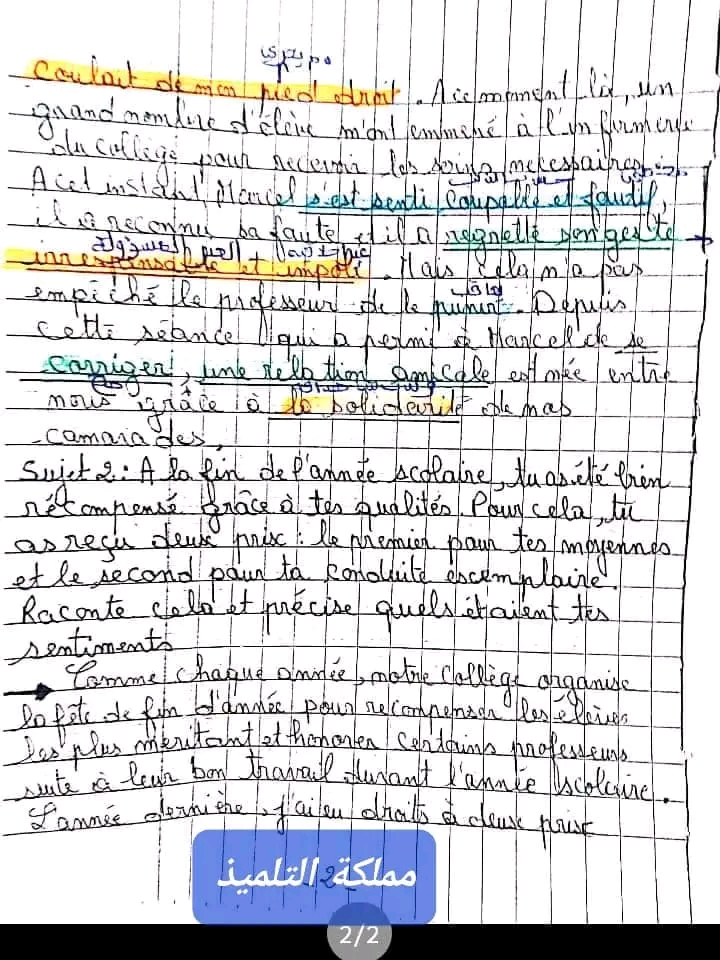 يجري دم
coulait de mon pied droit. A ce moment là, un
grand nombre d'élève m'ont emmené à l'infirmerie
du collège pour recevoir les soins necessaires.
A cet instant, Marcel s'est senti coupable et fautif,
il a reconnu sa faute et il a regretté son geste
irresponsable et impoli. Mais cela n'a pas
empêché le professeur de le punir. Depuis
cette séance qui a permi à Marcel de se
corriger, une relation amicale est née entre
nous grâce à la solidarité de mas
camarades,
Sujet 2: A la fin de l'année scolaire, tu as été bien
récompensé grâce à tes qualités. Pour cela, tu
as reçu deux prix : le premier pour tes moyennes
et le second pour ta conduite escemplaire.
Raconte cela et précise quels étaient tes
sentiments
Comme chaque année, notre collège organise
la fête de fin d'année pour recompenser les élèves
les plus méritant et honorer certains professeurs
suite à leur bon travail durant l'année scolaire.
L'année dernière, j'ai eu droits à deux prix
2
مملكة التلميذ
2/2